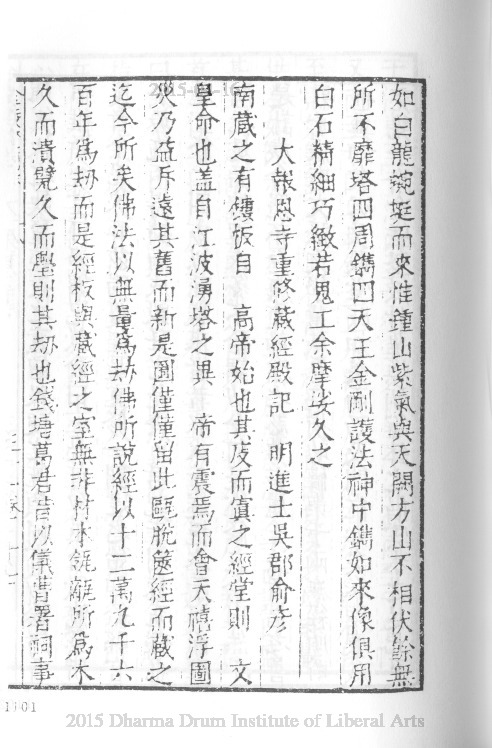 如白龍蜿蜒而來惟鍾山紫氣與天闕方山不相伏餘無
所不靡塔四周鐫四天王金剛護法神中鐫如來像俱用
白石精細巧緻若鬼工余摩娑久之
大報恩寺重修藏經殿記 明進士吳郡俞彥
南藏之有鏤板自 高帝始也其庋而寘之經堂則 文
皇命也蓋自江波湧塔之異 帝有震焉而會天禧浮圖
災乃益斥遠其舊而新是圖僅僅留此甌脫篋經而藏之
迄今所矣佛法以無量為劫佛所說經以十二萬九千六
百年為劫而是經板與藏經之室無非材木瓴甋所為木
久而潰甓久而壆則其劫也錢塘葛君嘗以儀曹署祠事
1001
2015 Dharma Drum Institute of Liberal Arts